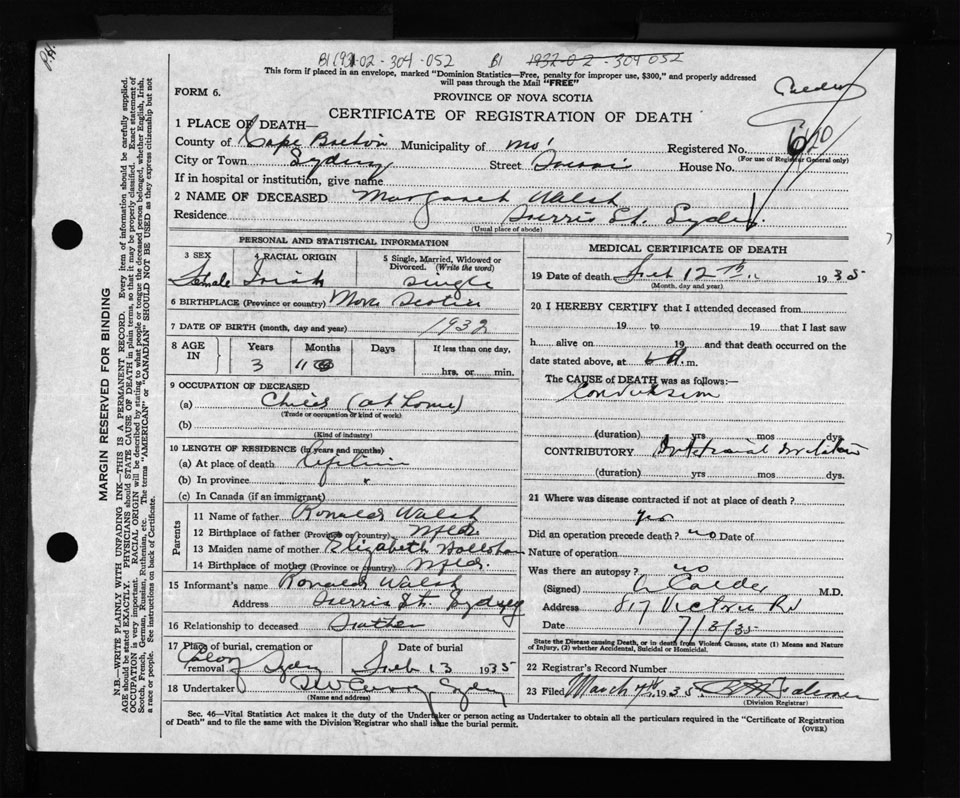 P.H.
B1 1931-02-304-052 B1 1932-02-304052
This form if placed in an envelope, marked "Dominion Statistics—Free, penalty for improper use, $300," and properly addressed
will pass through the Mail "FREE"
FORM 6.
PROVINCE OF NOVA SCOTIA
CERTIFICATE OF REGISTRATION OF DEATH
1 PLACE OF DEATH—
County of Cape Breton Municipality of Registered No. 610
(For use of Registrar General only)
City or Town Sydney Street House No.
If in hospital or institution, give name
2 NAME OF DECEASED Margaret Walsh
Residence St. Sydney
(Usual place of abode)
PERSONAL AND STATISTICAL INFORMATION
3 SEX
Female
4 RACIAL ORIGIN
Irish
5 Single, Married, Widowed or
Divorced. (Write the word)
Single
6 BIRTHPLACE (Province or country) Nova Scotia
7 DATE OF BIRTH (month, day and year) 1932
8 AGE
IN
Years
3
Months
11
Days
If less than one day,
hrs. or min.
9 OCCUPATION OF DECEASED
(a) Child (at home)
(Trade or occupation or kind of work)
(b)
(Kind of industry)
10 LENGTH OF RESIDENCE (in years and months)
(a) At place of death Lifetime
(b) In province "
(c) In Canada (if an immigrant)
Parents
11 Name of father Ronald Walsh
12 Birthplace of father (Province or country) Nfld.
13 Maiden name of mother Elizabeth
14 Birthplace of mother (Province or country) Nfld.
15 Informant's name Ronald Walsh
Address St. Sydney
16 Relationship to deceased Father
17 Place of burial, cremation or
removal Sydney
Date of burial
Feb 13 1935
18 Undertaker Sydney
(Name and address)
MEDICAL CERTIFICATE OF DEATH
19 Date of death Feb 12th 1935
(Month, day and year)
20 I HEREBY CERTIFY that I attended deceased from
19 to 19 that I last saw
h alive on 19 and that death occurred on the
date stated above, at 6 A.m.
The CAUSE of DEATH was as follows:—
Convulsion
(duration) yrs mos dys.
CONTRIBUTORY Intestinal Irritation
(duration) yrs mos dys.
21 Where was disease contracted if not at place of death?
yes
Did an operation precede death? no Date of
Nature of operation
Was there an autopsy? no
(Signed) A Calder M.D.
Address 817 Victoria Rd
Date 7/3/35
State the Disease causing Death, or in death from Violent Causes, state (1) Means and Nature
of Injury, (2) whether Accidental, Suicidal or Homicidal.
22 Registrar's Record Number
23 Filed March 7th 1935
(Division Registrar)
Sec. 46—Vital Statistics Act makes it the duty of the Undertaker or person acting as Undertaker to obtain all the particulars required in the "Certificate of Registration
of Death" and to file the same with the Division Registrar who shall issue the burial permit.
(OVER)
MARGIN RESERVED FOR BINDING
N.B.—WRITE PLAINLY WITH UNFADING INK—THIS IS A PERMANENT RECORD. Every item of information should be carefully supplied.
AGE should be stated EXACTLY. PHYSICIANS should STATE CAUSE OF DEATH in plain terms, so that it may be properly classified. Exact statement of
OCCUPATION is very important. RACIAL ORIGIN will be described by stating to what people or tongue the deceased person belonged, whether English, Irish,
Scotch, French, German, Russian, Ruthenian, etc. The terms "AMERICAN" or "CANADIAN" SHOULD NOT BE USED as they express citizenship but not
a race or people. See instructions on back of Certificate.